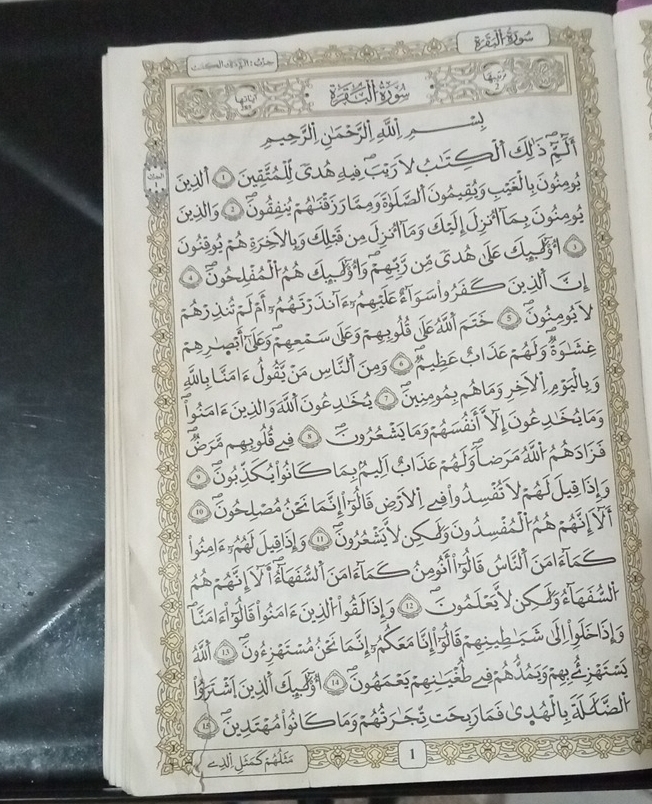 سُورَةُ الْبَقَرَةِ
مدنية
ترتيبها 2
سُورَةُ الْبَقَرَةِ
آياتها 285
بِسْمِ اِللَّهِ اِلرَّحْمَٰنِ اِلرَّحِيمِ
أَلَٓمِّٓۖ ذَٰلِكَ اَلْكِتَٰبُ لَا رَيْبَۖ فِيهِ هُدىٗ لِّلْمُتَّقِينَ 1 اَلذِينَ
يُومِنُونَ بِالْغَيْبِ وَيُقِيمُونَ اَلصَّلَوٰةَ وَمِمَّا رَزَقْنَٰهُمْ يُنفِقُونَۖ 2 وَالذِينَ
يُومِنُونَ بِمَآ أُنزِلَ إِلَيْكَ وَمَآ أُنزِلَ مِن قَبْلِكَ وَبِالَاخِرَةِ هُمْ يُوقِنُونَ
3 أُوْلَٰٓئِكَ عَلَىٰ هُدىٗ مِّن رَّبِّهِمْۖ وَأُوْلَٰٓئِكَ هُمُ اُلْمُفْلِحُونَۖ 4
إِنَّ اَلذِينَ كَفَرُواْ سَوَآءٌ عَلَيْهِمُۥٓ ءَآنذَرْتَهُمُۥٓ أَمْ لَمْ تُنذِرْهُمْ
لَا يُومِنُونَۖ 5 خَتَمَ اَللَّهُ عَلَىٰ قُلُوبِهِمْ وَعَلَىٰ سَمْعِهِمْۖ وَعَلَىٰٓ أَبْصَٰرِهِمْ
غِشَٰوَةٞۖ وَلَهُمْ عَذَابٌ عَظِيمٞۖ 6 وَمِنَ اَلنَّاسِ مَنْ يَّقُولُ ءَامَنَّا بِاللَّهِ
وَبِالْيَوْمِ اِلَاخِرِ وَمَا هُم بِمُومِنِينَۖ 7 يُخَٰدِعُونَ اَللَّهَ وَالذِينَ ءَامَنُواْۖ
وَمَا يُخَٰدِعُونَ إِلَّآ أَنفُسَهُمْ وَمَا يَشْعُرُونَۖ 8 فِے قُلُوبِهِم مَّرَضٞ
فَزَادَهُمُ اُللَّهُ مَرَضاٗۖ وَلَهُمْ عَذَابٌ اَلِيمُۢ بِمَا كَانُواْ يُكَذِّبُونَۖ 9
وَإِذَا قِيلَ لَهُمْ لَا تُفْسِدُواْ فِے اِلَارْضِ قَالُوٓاْ إِنَّمَا نَحْنُ مُصْلِحُونَۖ 10
أَلَآ إِنَّهُمْ هُمُ اُلْمُفْسِدُونَ وَلَٰكِن لَّا يَشْعُرُونَۖ 11 وَإِذَا قِيلَ لَهُمُۥٓ ءَامِنُواْ
كَمَآ ءَامَنَ اَلنَّاسُ قَالُوٓاْ أَنُومِنُ كَمَآ ءَامَنَ اَلسُّفَهَآءُۖ اَلَآ إِنَّهُمْ هُمُ
اُلسُّفَهَآءُ وَلَٰكِن لَّا يَعْلَمُونَۖ 12 وَإِذَا لَقُواْ اُلذِينَ ءَامَنُواْ قَالُوٓاْ ءَامَنَّاۖ
وَإِذَا خَلَوِاْ اِلَىٰ شَيَٰطِينِهِمْ قَالُوٓاْ إِنَّا مَعَكُمُۥٓ إِنَّمَا نَحْنُ مُسْتَهْزِءُونَۖ 13 اَللَّهُ
يَسْتَهْزِئُ بِهِمْ وَيَمُدُّهُمْ فِے طُغْيَٰنِهِمْ يَعْمَهُونَۖ 14 أُوْلَٰٓئِكَ اَلذِينَ اَشْتَرَوُاْ
اُلضَّلَٰلَةَ بِالْهُدَىٰ فَمَا رَبِحَت تِّجَٰرَتُهُمْ وَمَا كَانُواْ مُهْتَدِينَۖ 15
مَثَلُهُمْ كَمَثَلِ اِلذِے
1